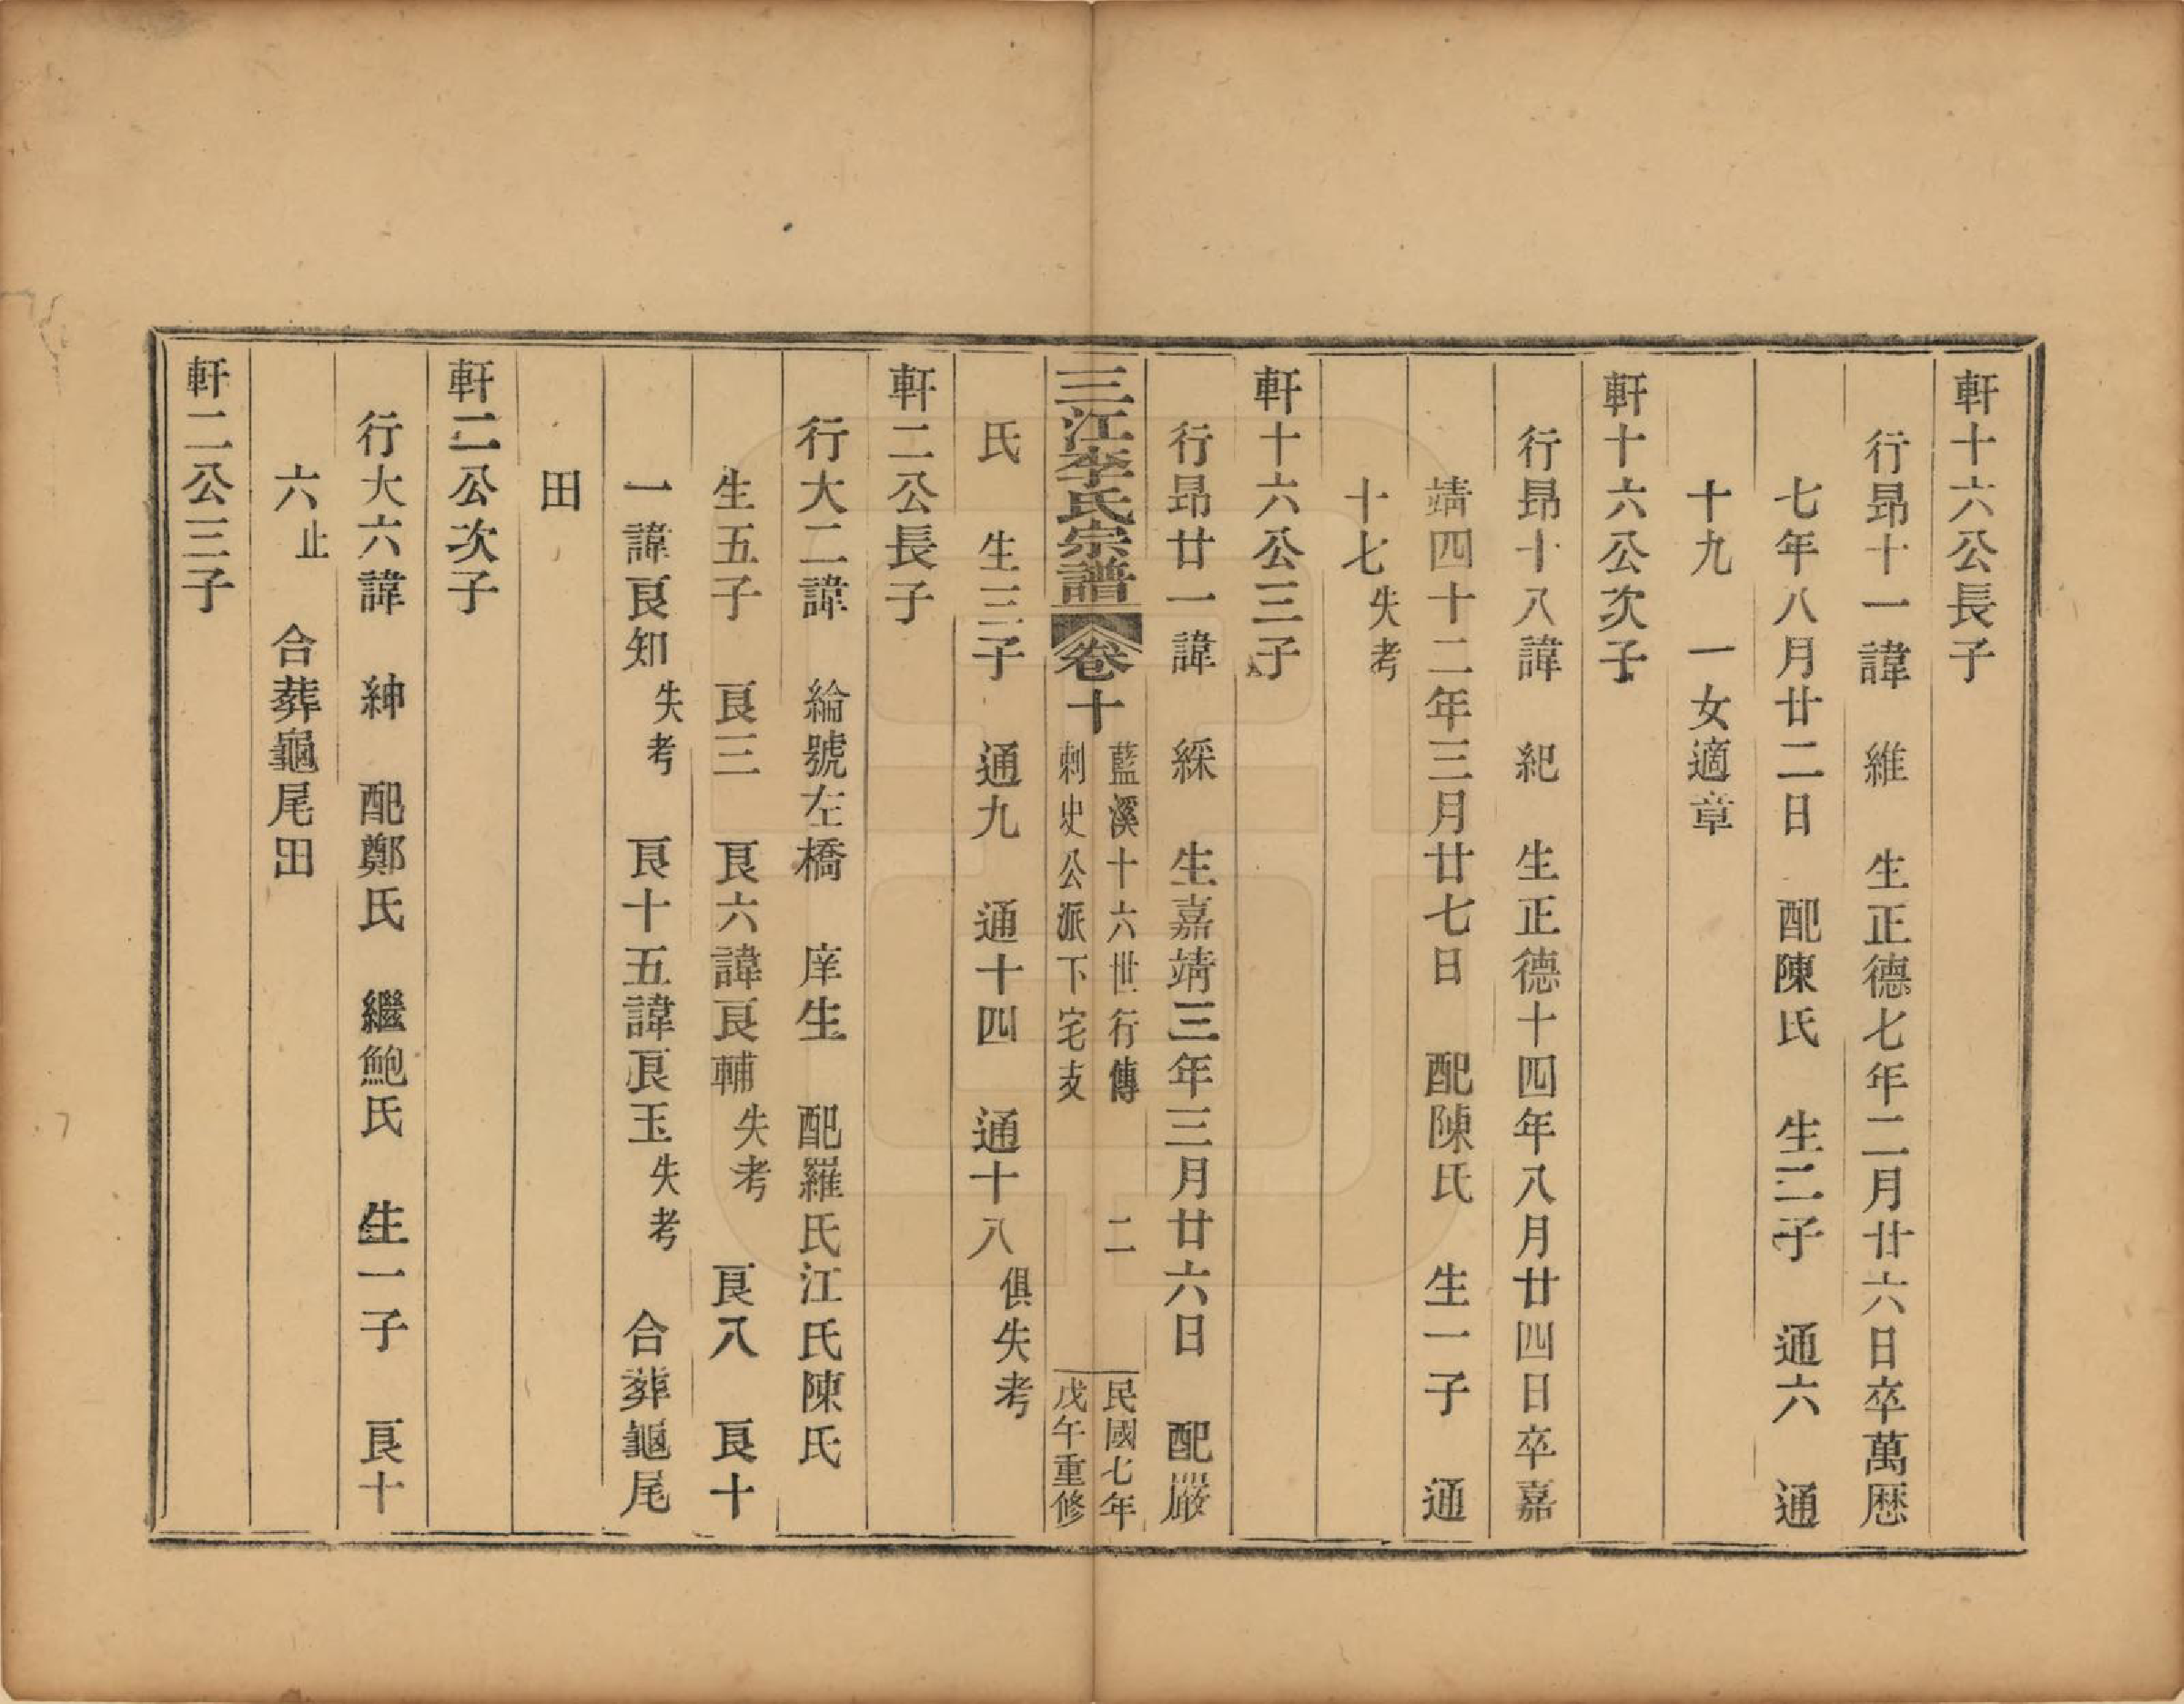 軒十六公長子
行昻十一諱 維 生正德七年二月廿六日卒萬歴
七年八月廿二日 配陳氏 生二子 通六 通
十九 一女適章
軒十六公次子
行昻十八諱 紀 生正德十四年八月廿四日卒嘉
靖四十二年三月廿七日 配陳氏 生一子 通
十七失考
軒十六公三子
行昻廿一諱 綵 生嘉靖三年三月廿六日 配嚴
三江李氏宗譜 卷十
藍溪十六世行傳
刺史公派下宅支
二
民國七年
戊午重修
氏 生三子 通九 通十四 通十八俱失考
軒二公長子
行大二諱 綸號左橋 庠生 配羅氏江氏陳氏
生五子 良三 良六諱良輔失考 良八 良十
一諱良知失考 良十五諱良玉失考 合葬龜尾
田
軒二公次子
行大六諱 紳 配鄭氏 繼鮑氏 生一子 良十
六止 合葬龜尾田
軒二公三子